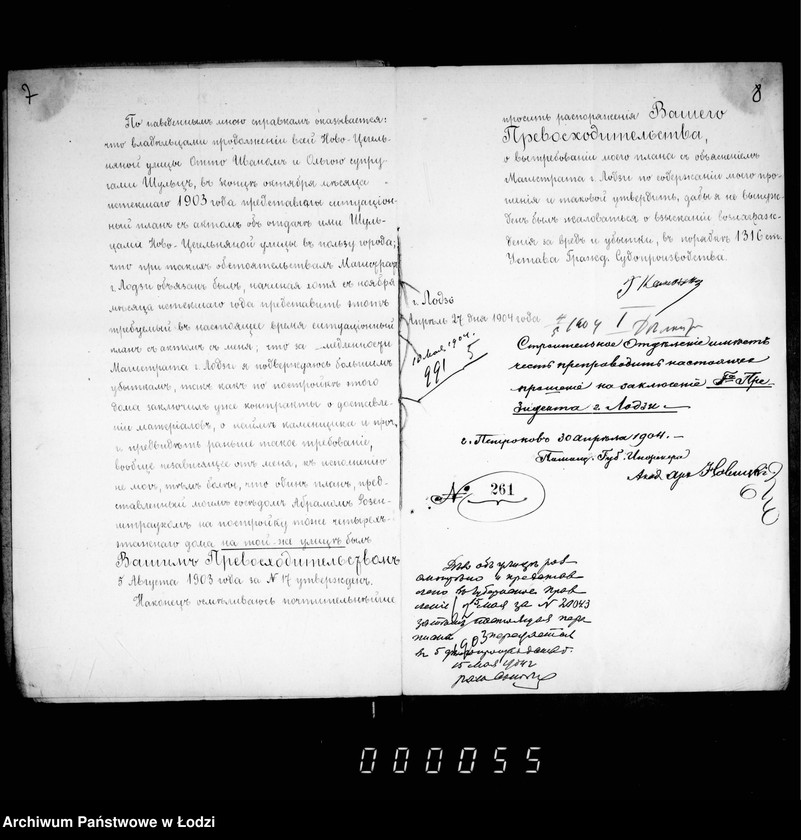 7
По наведеннымъ мною справкамъ оказывается:
что владѣльцами продолженіи вай Ново-Цегель-
няной улицы Отто Иваномъ и Ольгою супру-
гами Шульцъ, въ концѣ октября мѣсяца
истекшаго 1903 года представлены ситуаціон-
ный планъ съ актомъ объ отдачѣ ими Шуль-
цами Ново-Цегельняной улицы въ пользу города;
что при такихъ обстоятельствахъ Магистратъ
г. Лодзи обязанъ былъ, начиная хотя съ ноября
мѣсяца истекшаго года представить этотъ
требуемый въ настоящее время ситуаціонный
планъ съ актомъ съ меня; что за медленности
Магистрата г. Лодзи я подвергаюсь большимъ
убыткамъ, такъ какъ по постройкѣ этого
дома заключилъ уже контракты о доставле-
ніи матеріаловъ, о наймѣ каменщика и проч.
и предвидѣть раньше такое требованіе,
вообще независящее отъ меня, къ исполненію
не могъ, тѣмъ болѣе, что одинъ планъ, пред-
ставленный моимъ сосѣдомъ Абрамомъ Розен-
штраухомъ на постройку тоже четырехъ-
этажнаго дома на той-же улицѣ былъ
Вашимъ Превосходительствомъ
5 Августа 1903 года за № 17 утвержденъ.
Наконецъ осмѣливаюсь почтительнѣйше
8
просить распоряженія Вашего
Превосходительства,
о вытребованіи моего плана съ объясненіемъ
Магистрата г. Лодзи по содержанію моего про-
шенія и таковой утвердить, дабы я не вынуж-
денъ былъ жаловаться о взысканіи вознаграж-
денія за вредъ и убытки, въ порядкѣ 1316 ст.
Устава Гражд. Судопроизводства.
г. Лодзь
Апрѣль 27 дня 1904 года
10 мая 1904.
991
5
4/5 1904 I
Строительное Отдѣленіе имѣетъ
честь препроводить настоящее
прошеніе на заключеніе Г-на Пре-
зидента г. Лодзи.
г. Петроковъ 30 апрѣля 1904.
Помощ. Губ. Инженера
Акад. арх. Новицкій
№ 261
Дѣло объ улицѣ
и представ-
лено въ Губернское Прав-
леніе 7 мая за № 20043
настоящая пере-
писка
15 мая 1904 г.
000055
Archiwum Państwowe w Łodzi